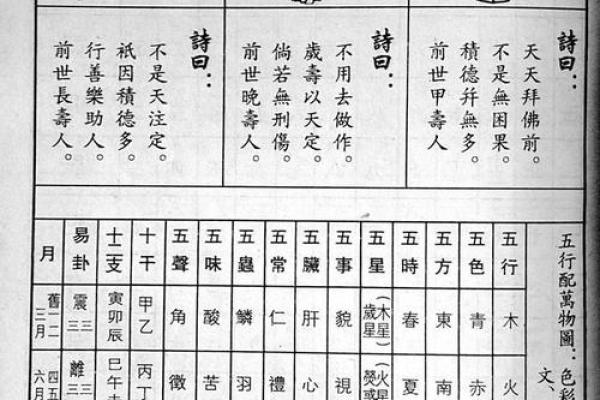 詩曰：
天天拜佛前。
不是無因果。
積德幷無多。
前世甲壽人
詩曰：
不用去做作。
歲壽以天定。
倘若無刑傷。
前世晚壽人。
詩曰：
不是天注定。
衹因積德多。
行善樂助人。
前世長壽人。
五行配萬物圖：色彩
文、
五行 木 火
五色 青 赤
五方 東 南
五時 春 夏
五星 （木星 歲星） （火星 熒惑
五事 貌 視
五臟 肝 心
五常 仁 禮
五蟲 鱗 羽
五味 酸 苦
五聲 角 徵
十干 甲乙 丙丁
十二支 寅卯辰 巳午
易卦 震 離
月 舊一二三月 四五六月